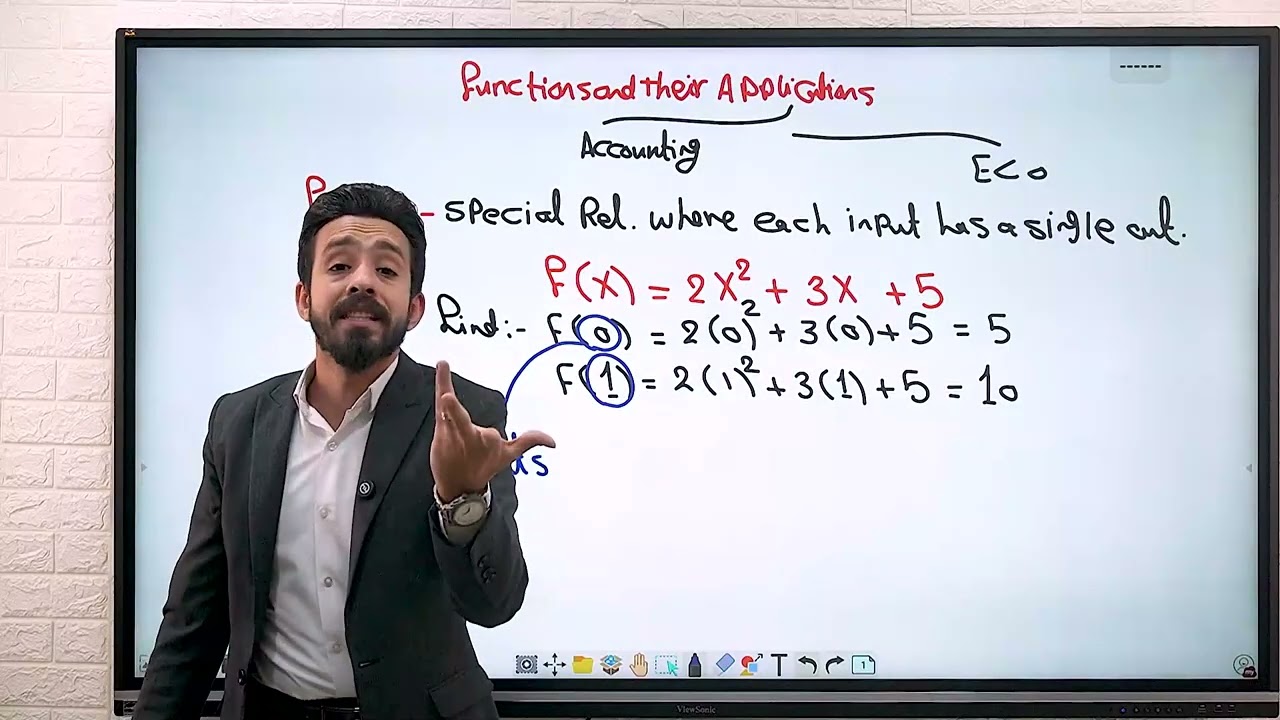 Functions and their Applications
Accounting
Eco
- special Rel. where each input has a single out.
F(x) = 2x² + 3x + 5
find:- F(0) = 2(0)² + 3(0) + 5 = 5
F(1) = 2(1)² + 3(1) + 5 = 10
1
ViewSonic